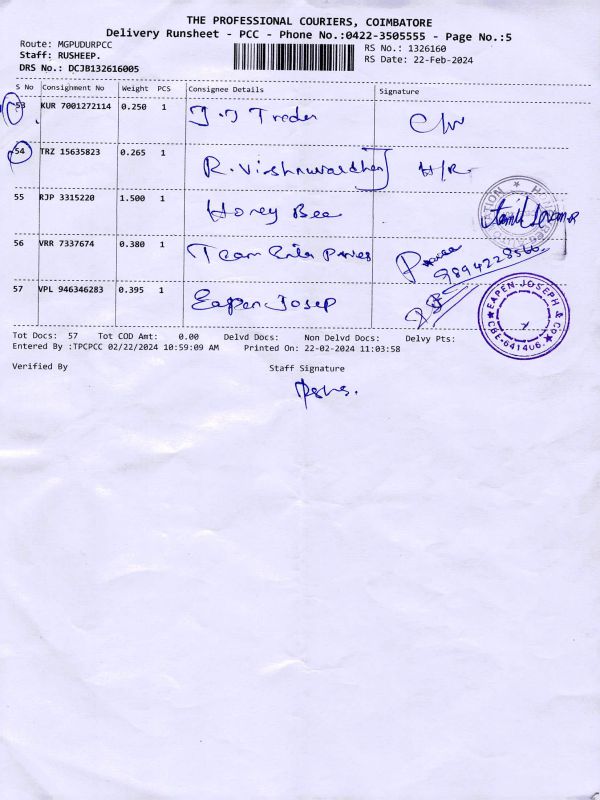 THE PROFESSIONAL COURIERS, COIMBATORE
Delivery Runsheet - PCC - Phone No.:0422-3505555 - Page No.:5
Route: MGPUDURPCC
RS No.: 1326160
Staff: RUSHEEP.
RS Date: 22-Feb-2024
DRS No.: DCJB132616005
S No Consignment No Weight PCS Consignee Details Signature
53 KUR 7001272114 0.250 1 J.J Trader
54 TRZ 15635823 0.265 1 R. Vishnuvardhan H/R
55 RJP 3315220 1.500 1 Honey Bee
56 VRR 7337674 0.380 1 Team
9894228566
57 VPL 946346283 0.395 1 Eapen Josep
EAPEN JOSEPH & CO
CBE-641406.
Tot Docs: 57 Tot COD Amt: 0.00 Delvd Docs: Non Delvd Docs: Delvy Pts:
Entered By :TPCPCC 02/22/2024 10:59:09 AM Printed On: 22-02-2024 11:03:58
Verified By Staff Signature